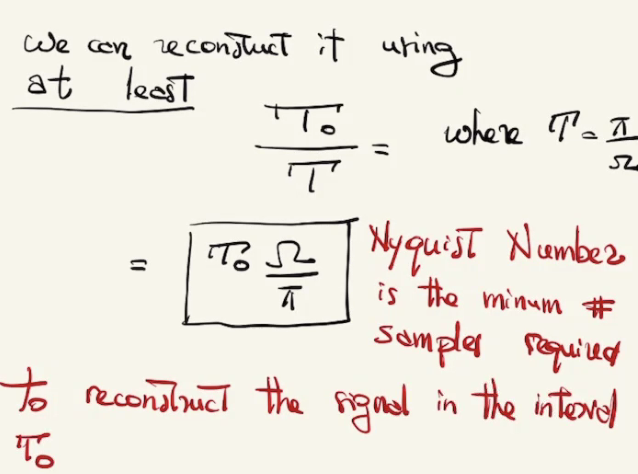 We can reconstruct it using
at least
T₀/T = where T = π/Ω
= T₀ Ω/π Nyquist Number
is the minum #
samples required
to reconstruct the signal in the interval
T₀